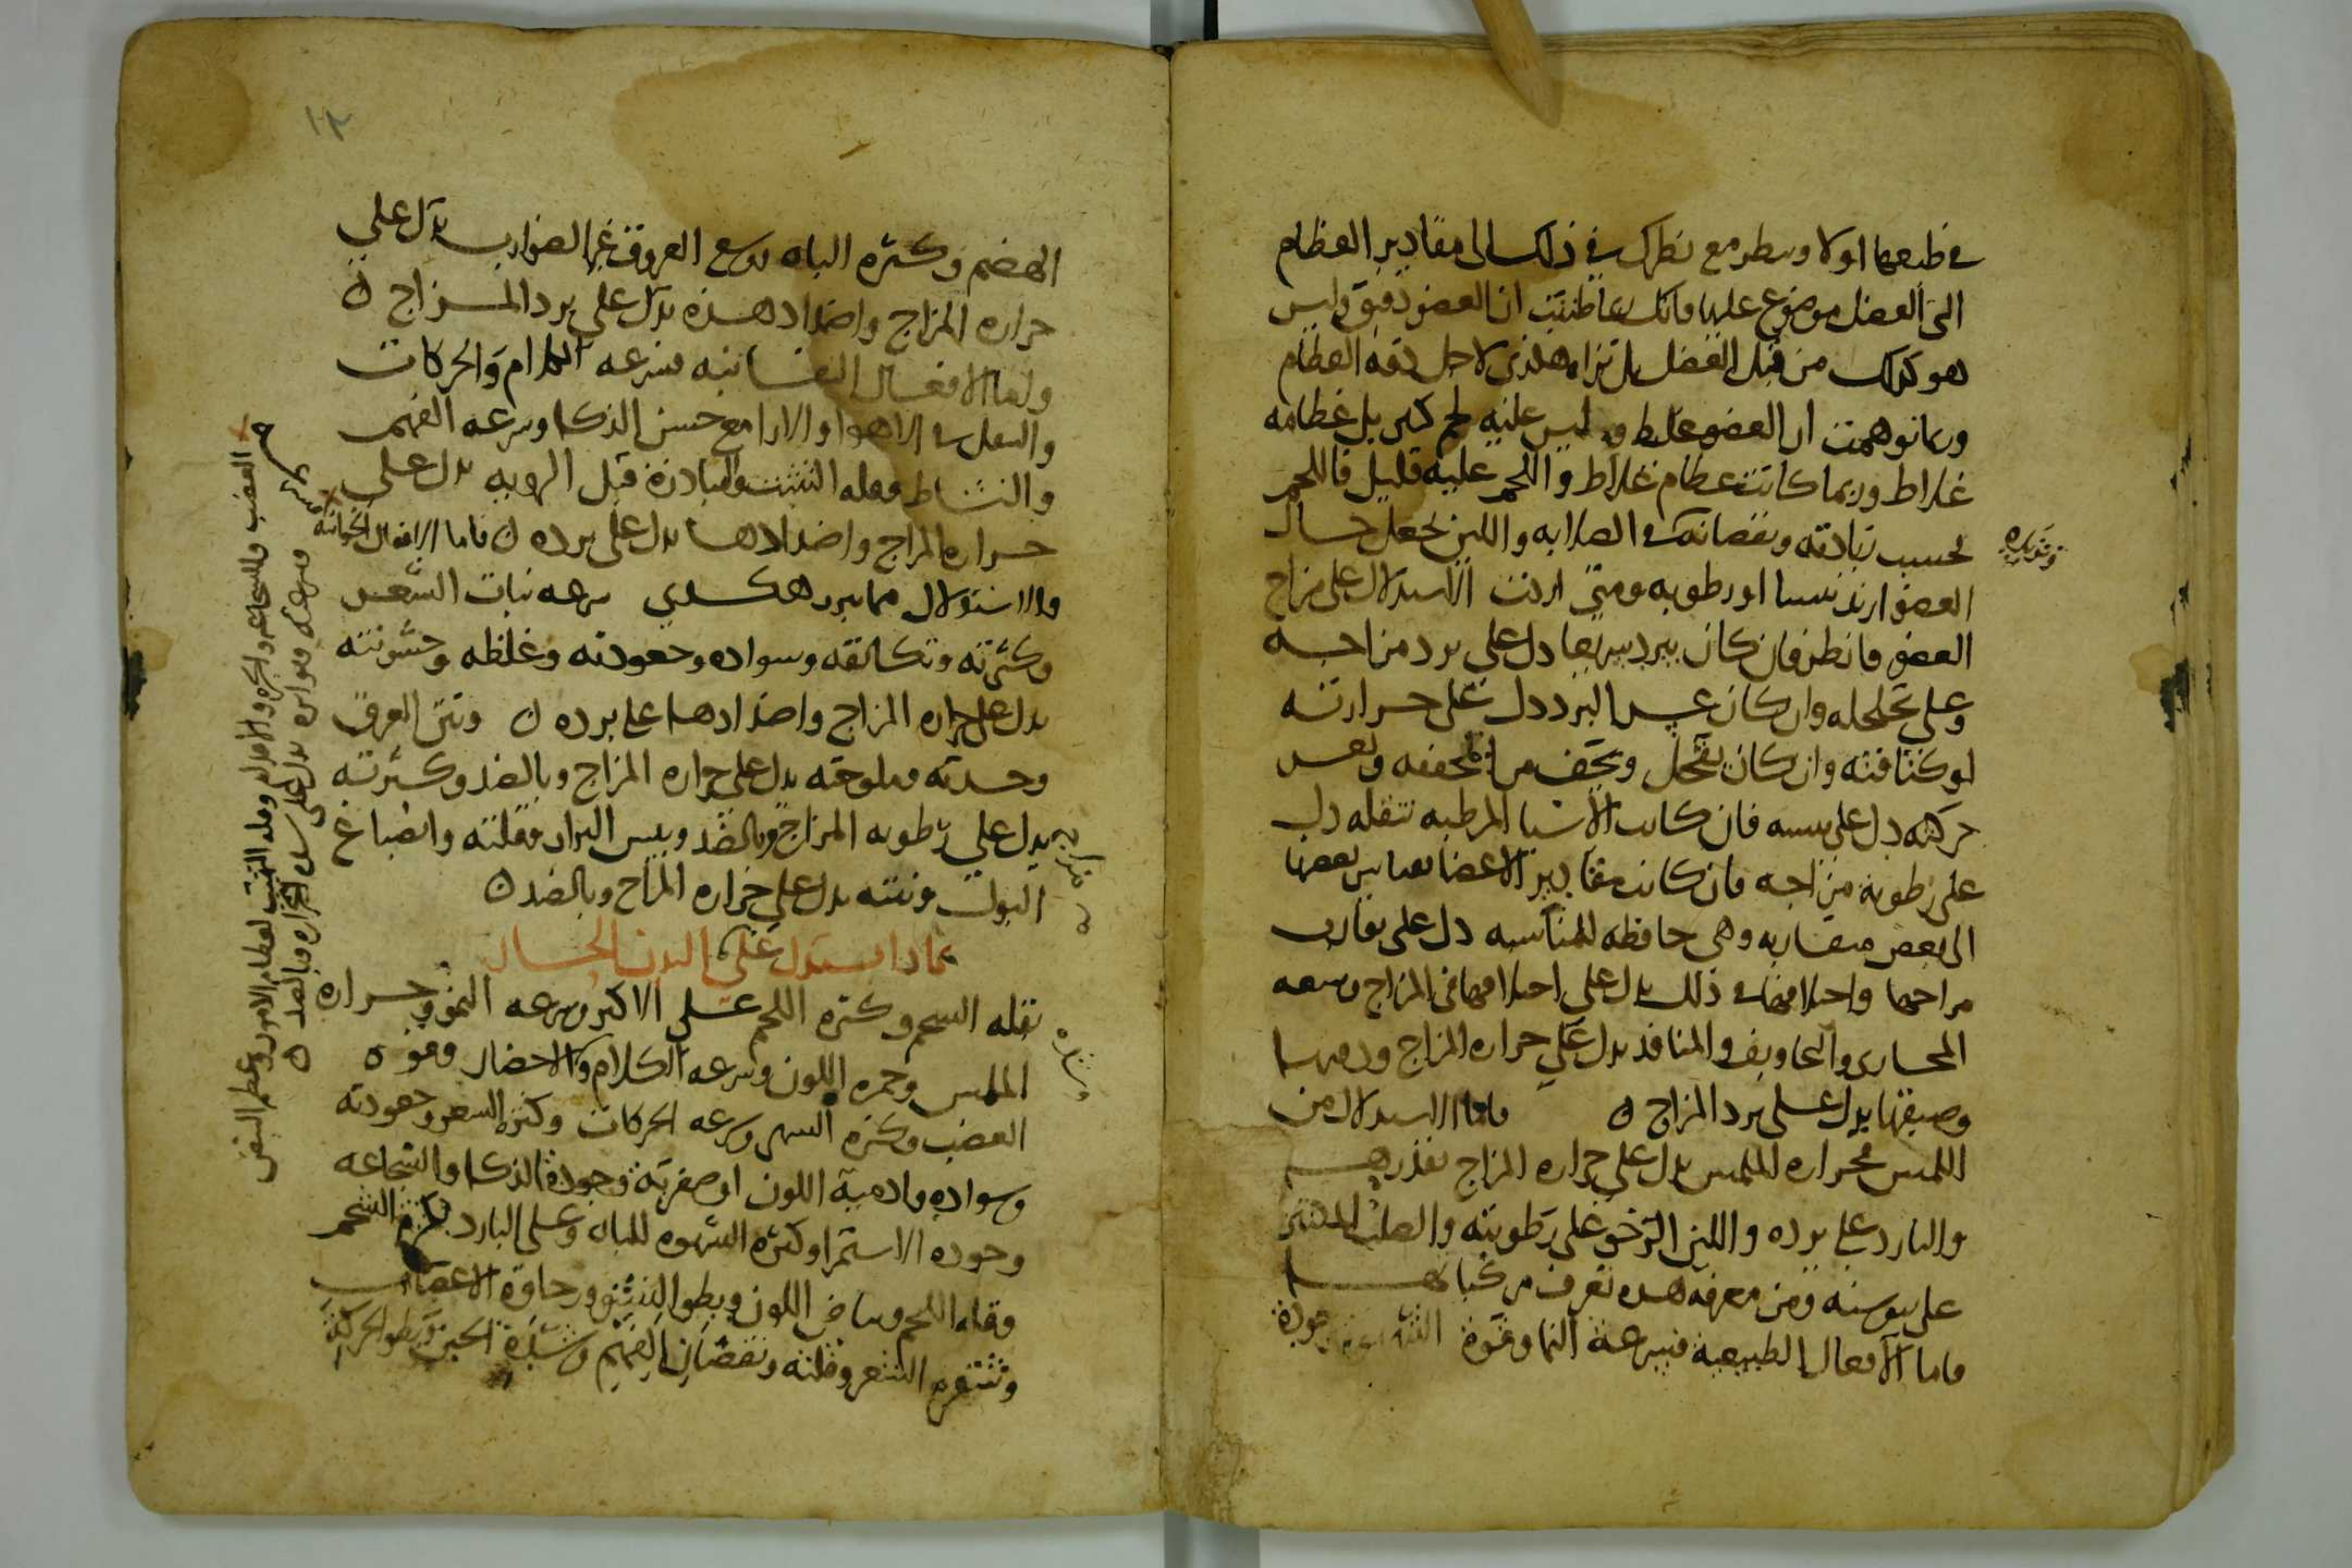 في طبعهما اولا وينظر مع نظرك في ذلك الى مقادير العظام
التي العضل موضوع عليها فانك ربما ظننت ان العضو دقيق وليس
هو كذلك من قبل العضل بل تراه هكذى لاجل دقه العظام
وربما توهمت ان العضو غليظ وليس عليه لحم كثير بل عظامه
غلاظ وربما كانت عظام غلاظ واللحم عليه قليل فاللحم
بحسب زيادته ونقصانه في الصلابه واللين يجعل حال
العضو ازيد يبسا او رطوبه ومتى اردت الاستدلال على مزاج
العضو فانظر فان كان يبرد سريعا دل على برد مزاجه
وعلى تخلخله وان كان عسر البرد دل على حرارته
او كثافته وان كان يقحل ويجف من المجففه وتعسر
حركته دل على يبسه فان كانت الاشيا المرطبه تثقله دل
على رطوبة مزاجه فان كانت مقادير الاعضا بقياس بعضها
الى بعض متقاربه وهي حافظه للمناسبه دل على تقارب
مزاجها واختلافها في ذلك يدل على اختلافها في المزاج وسعه
المجارى والتجاويف والمنافذ يدل على حراره المزاج
وضيقها يدل على برد المزاج ن فاما الاستدلال من
اللمس فحراره الملمس يدل على حراره المزاج
والبارد على برده واللين الرخو على رطوبته والصلب
على يبوسته ومن معرفه هذه تعرف مركباتها
فاما الافعال الطبيعية فسرعة النما وقوة الشهوة وجودة
١٢
الهضم وكثره الباه وسع العروق غير الضوارب يدل على
حراره المزاج واضداد هذه يدل على برد المزاج ن
واما الافعال النفسانيه فسرعه الكلام والحركات
والتقلب في الاهوا والارا مع حسن الذكا وسرعه الفهم
والنشاط وقله التثبت والمبادرة قبل الرويه يدل على
حراره المزاج واضدادها يدل على برده ن فاما الافعال الحيوانيه
والاستدلال مما يبرز هكذي سرعه نبات الشعر
وكثرته وتكاثفه وسواده وجعودته وغلظه وخشونته
يدل على حراره المزاج واضدادها على برده ن ونتن العرق
وحدته وملوحته يدل على حراره المزاج وبالضد وكثرته
يدل على رطوبه المزاج وبالضد ويبس البراز وقلته وانصباغ
البول ونتنه يدل على حراره المزاج وبالضد ن
بماذا يستدل على البدن الحار
بقله الشحم وكثره اللحم على الاكثر وسرعه النمو وحراره
الملمس وحمره اللون وسرعه الكلام والاحضار وقوه
الغضب وكثره السهر وسرعه الحركات وكثره الشعر وجعودته
وسواده وادمية اللون او صفرته وجودة الذكا والشجاعه
وجوده الاستمرا وكثره الشهوه للباه وعلى البارد بكثرة الشحم
وقله اللحم وبياض اللون وبطو النشو ورخاوة الاعصاب
وشقره الشعر وقلته ونقصان الفهم وشدة الجبن وبطو الحركة
الغضب والشجاعه والجره والاقدام وقله التثبت لعظام الامور وعظم النبض
وسرعته وتواتره يدل على شده الحراره وبالضد ن